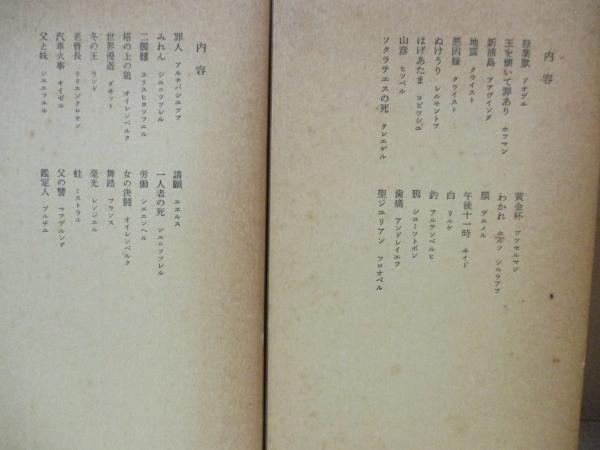 内容
緑葉歎 ドオデエ
玉を懐いて罪あり ホフマン
新浦島 アアヴイング
地震 クライスト
悪因縁 クライスト
ぬけうり レルモントフ
はげあたま コピツシユ
山彦 ヒツペル
ソクラテエスの死 クレエゲル
黄金杯 ワツセルマン
わかれ ホルツ シユラアフ
顔 デエメル
午後十一時 ヰイド
白 リルケ
釣 アルテンベルヒ
鴉 シユミツトボン
歯痛 アンドレイエフ
聖ジユリアン フロオベル
内容
罪人 アルチバシエフフ
みれん シユニツツレル
二髑髏 エリスヒヨツフエル
塔の上の鶏 オイレンベルク
世界漫遊 ダギツト
冬の王 ランド
老曹長 リリエンクロオン
汽車火事 キイゼル
父と妹 シエエフエル
請願 ユエルス
一人者の死 シユニツツレル
労働 シエエンヘル
女の決闘 オイレンベルク
舞踏 フランス
毫光 レンジエル
蛙 ミストラル
父の讐 マアデルング
鑑定人 ブルヂエ